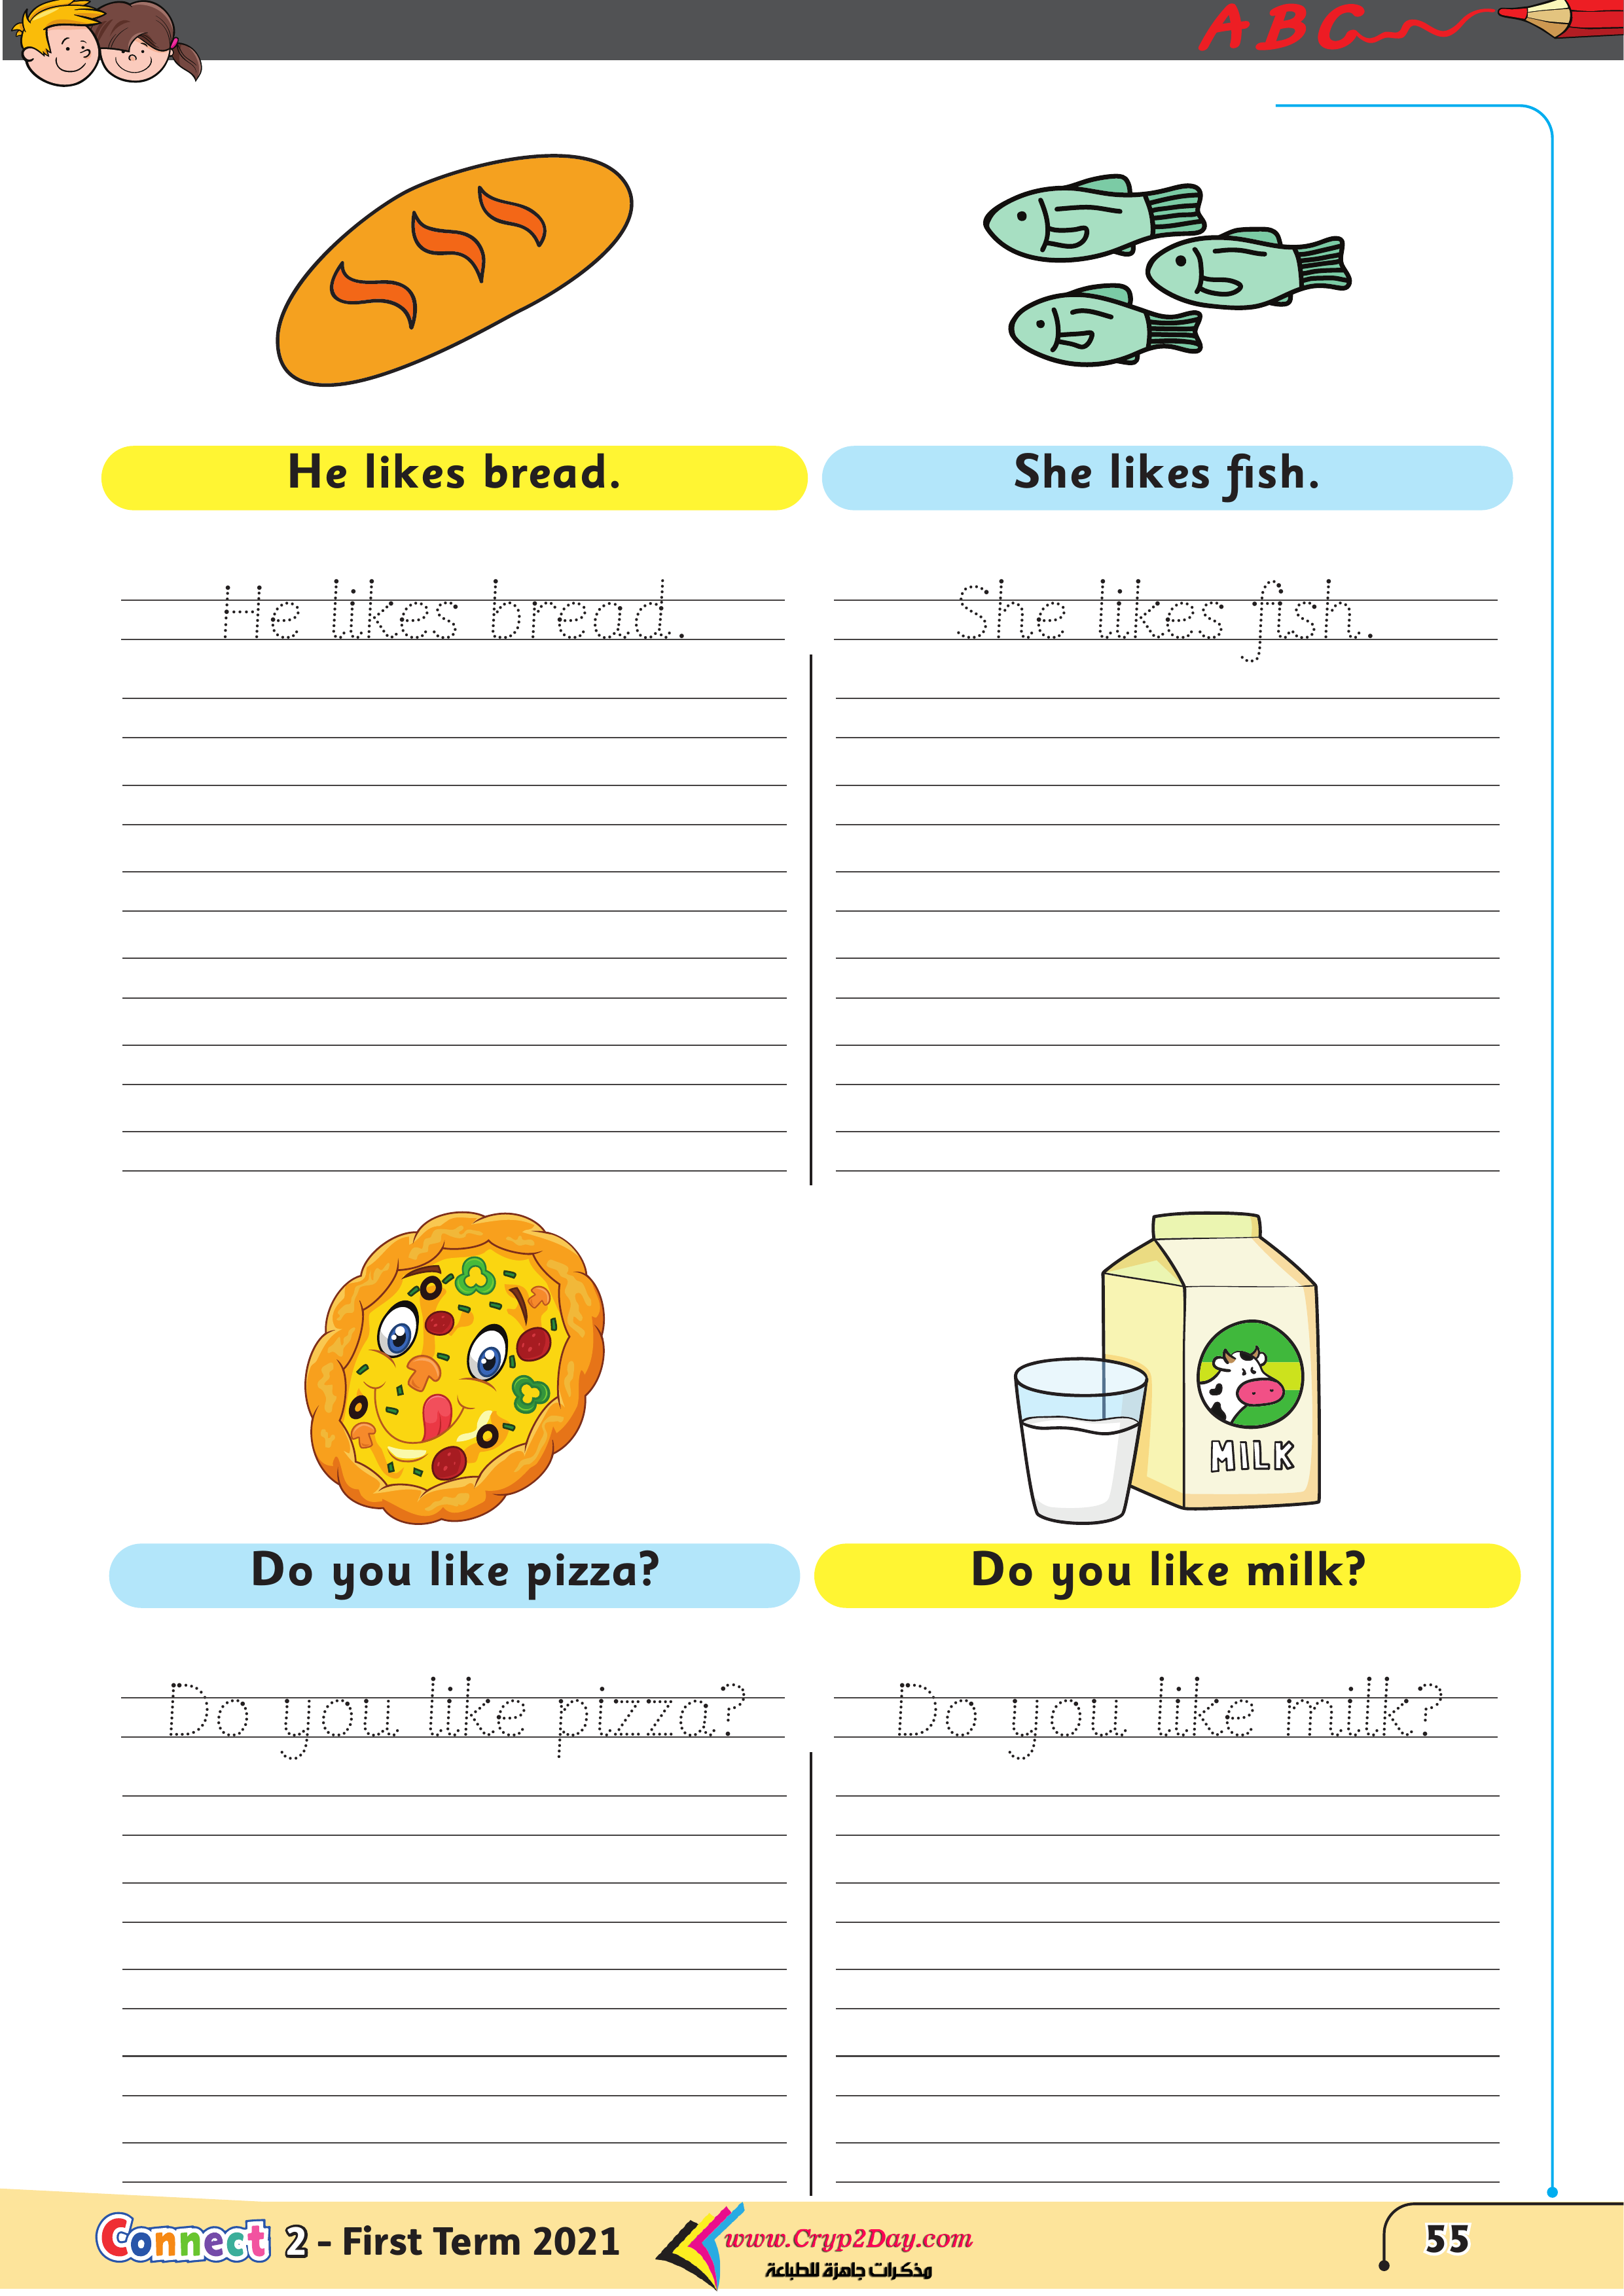 ABC
He likes bread.
She likes fish.
He likes bread.
She likes fish.
MILK
Do you like pizza?
Do you like milk?
Do you like pizza?
Do you like milk?
Connect 2 - First Term 2021
www.Cryp2Day.com
مذكرات جاهزة للطباعة
55